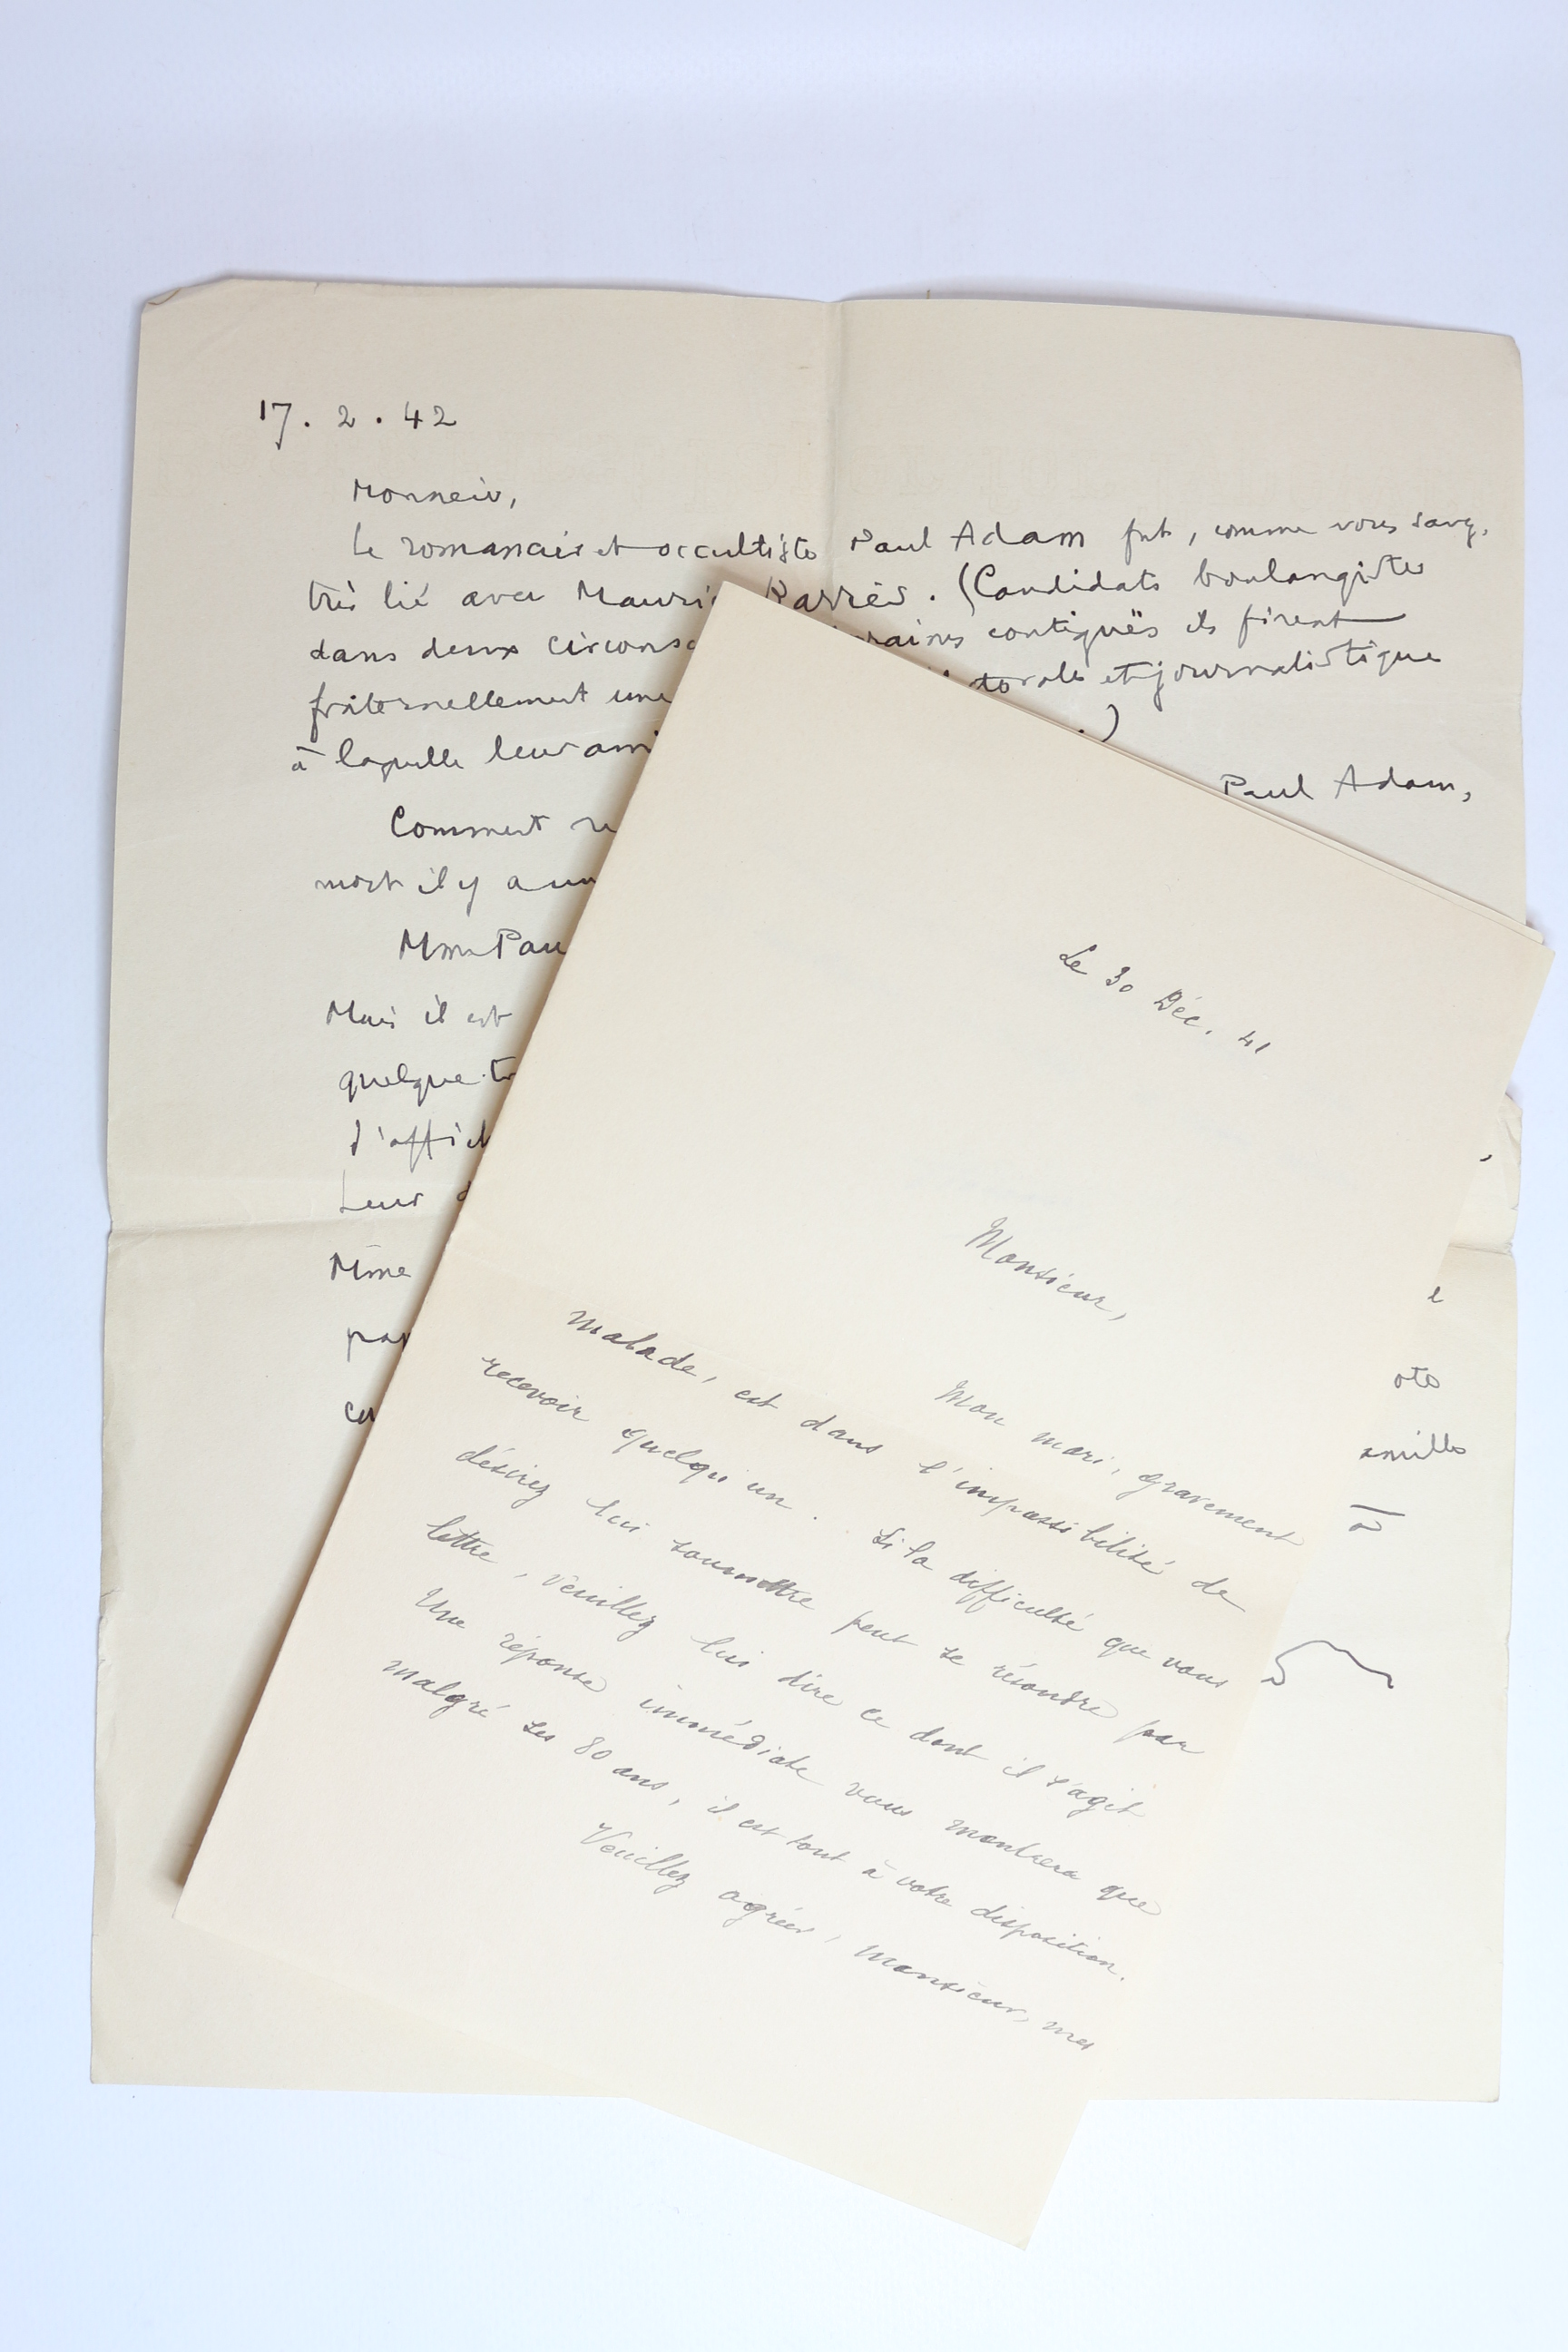 17. 2. 42
Monsieur,
Le romancier et occultiste Paul Adam fut, comme vous savez,
très lié avec Maurice Barrès. (Candidats boulangistes
dans deux circonsc raines contiguës ils firent
fraternellement une torale et journalistique
à laquelle leur ami .)
Comment re Paul Adam,
mort il y a un
Mme Pau
Mais il est
quelque t
d'affich
Leur d
Mme
par
co
,
e
ote
amille
à
Le 30 Déc. 41
Monsieur,
Mon mari, gravement
malade, est dans l'impossibilité de
recevoir quelqu'un. Si la difficulté que vous
désirez lui soumettre peut se résoudre par
lettre, veuillez lui dire ce dont il s'agit
Une réponse immédiate vous montrera que
malgré ses 80 ans, il est tout à votre disposition.
Veuillez agréer, Monsieur, mes